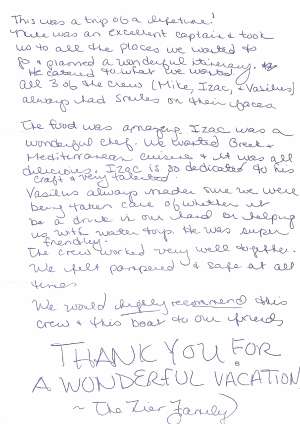 This was a trip of a lifetime!
There was an excellent captain & took
us to all the places we wanted to
go & planned a wonderful itinerary.
He catered to what we wanted
all 3 of the crew (Mike, Izac, & Vasilus)
always had smiles on their faces
The food was amazing Izac was a
wonderful chef. We wanted Greek &
Mediterranean cuisine & it was all
delicious. Izac is so dedicated to his
craft & very talented
Vasilus always made sure we were
being taken care of whether it
be a drink in our hand or helping
us with water toys. He was super
friendly.
The crew worked very well together.
We felt pampered & safe at all
times
We would highly recommend this
crew & this boat to our friends
THANK YOU FOR
A WONDERFUL VACATION
~ The Family